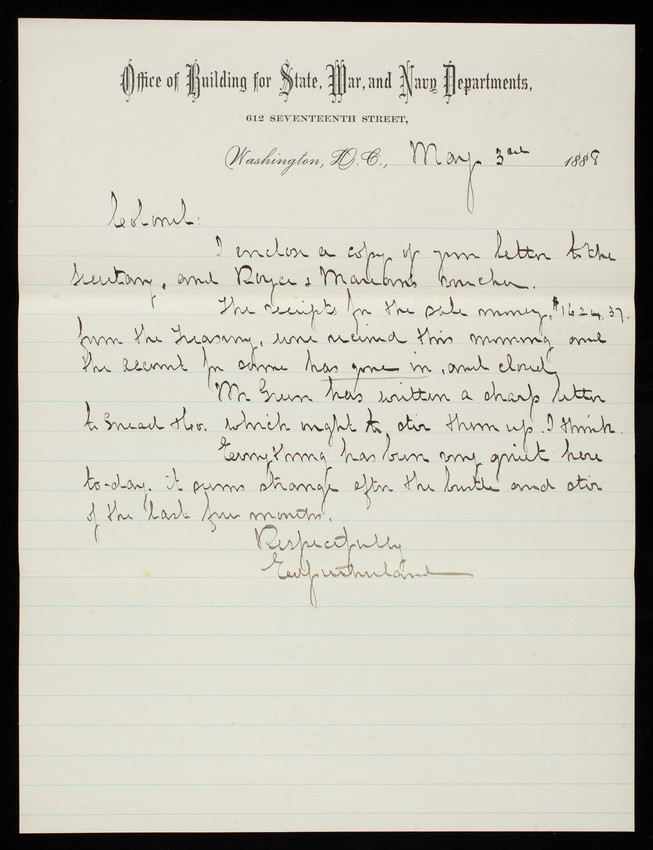 Office of Building for State, War, and Navy Departments,
612 SEVENTEENTH STREET,
Washington, D.C., May 3rd 1888
Colonel:
I enclose a copy of your letter to the
Secretary, and Royce & Marean's voucher.
The receipts for the sale money, $1624.37.
from the Treasury, were recieved this morning and
the account for same has gone in, and closed
Mr Green has written a sharp letter
to Snead & Co. which ought to stir them up. I think.
Everything has been very quiet here
to-day. it seems strange after the bustle and stir
of the last few months.
Respectfully